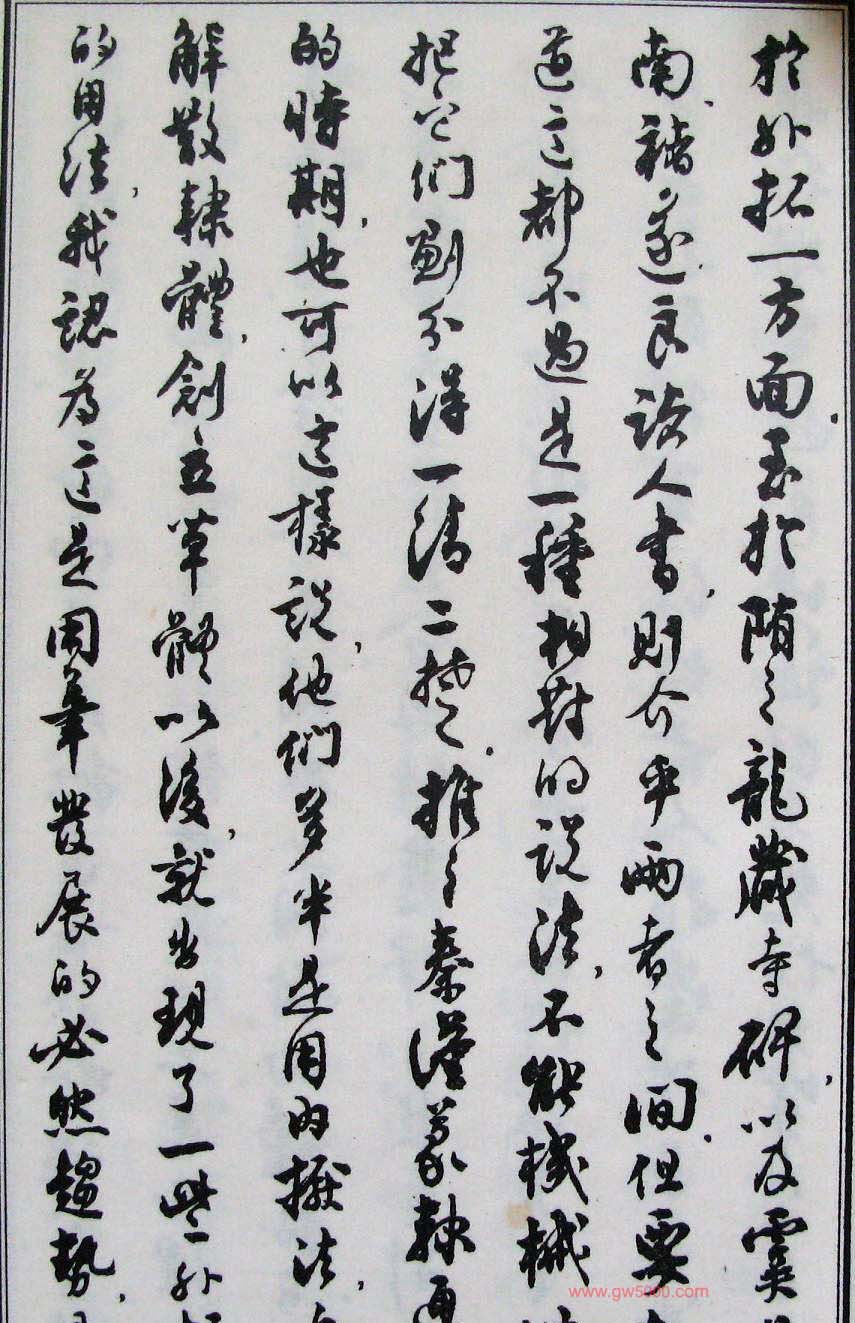 於外拓一方面。至於隋之龍藏寺碑，以及虞
南、褚遂良諸人書，則介乎兩者之間。但要
道這都不過是一種相對的説法，不能機械
把它們劃分得一清二楚。推之秦漢篆隸通
的時期，也可以這樣説，他們多半是用内擫法，
解散隸體，創立草體以後，就出現了一些外拓
的用法，我認為這是用筆發展的必然趨勢，
www.gw5000.com